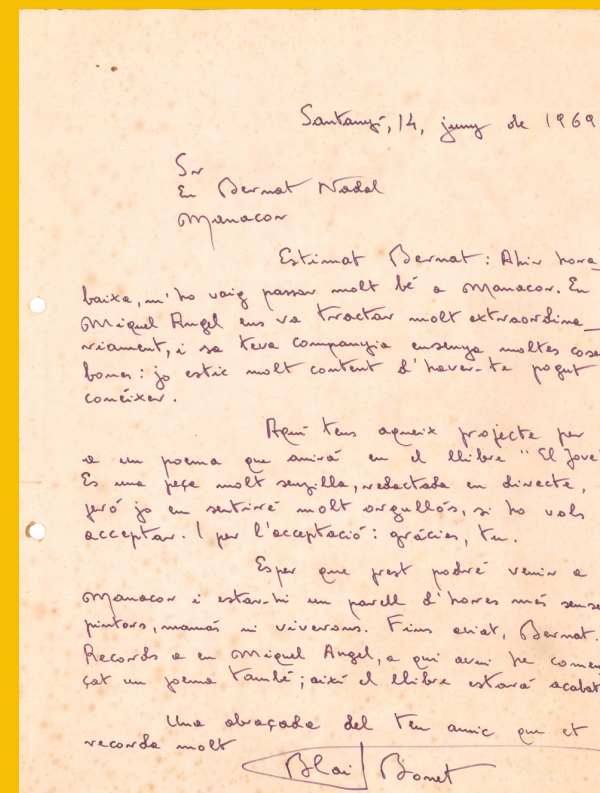 Santanyí, 14, juny de 1969
Sr
En Bernat Nadal
Manacor
Estimat Bernat: Ahir hora
baixa, m'ho vaig passar molt bé a Manacor. En
Miquel Angel ens va tractar molt extraordina_
riament, i sa teva companyia ensenya moltes coses
bones: jo estic molt content d'haver-te pogut
conèixer.
Aquí tens aqueix projecte per
a un poema que anirà en el llibre "El Jove"
Es una peça molt senzilla, redactada en directe,
però jo em sentiré molt orgullós, si ho vols
acceptar. I per l'acceptació: gràcies, tu.
Esper que prest podré venir a
Manacor i estar-hi un parell d'hores més sense
pintors, mamás ni viverons. Fins aviat, Bernat.
Records a en Miquel Angel, a qui avui he comen
çat un poema també; així el llibre estarà acabat
Una abraçada del teu amic que et
recorda molt
Blai Bonet